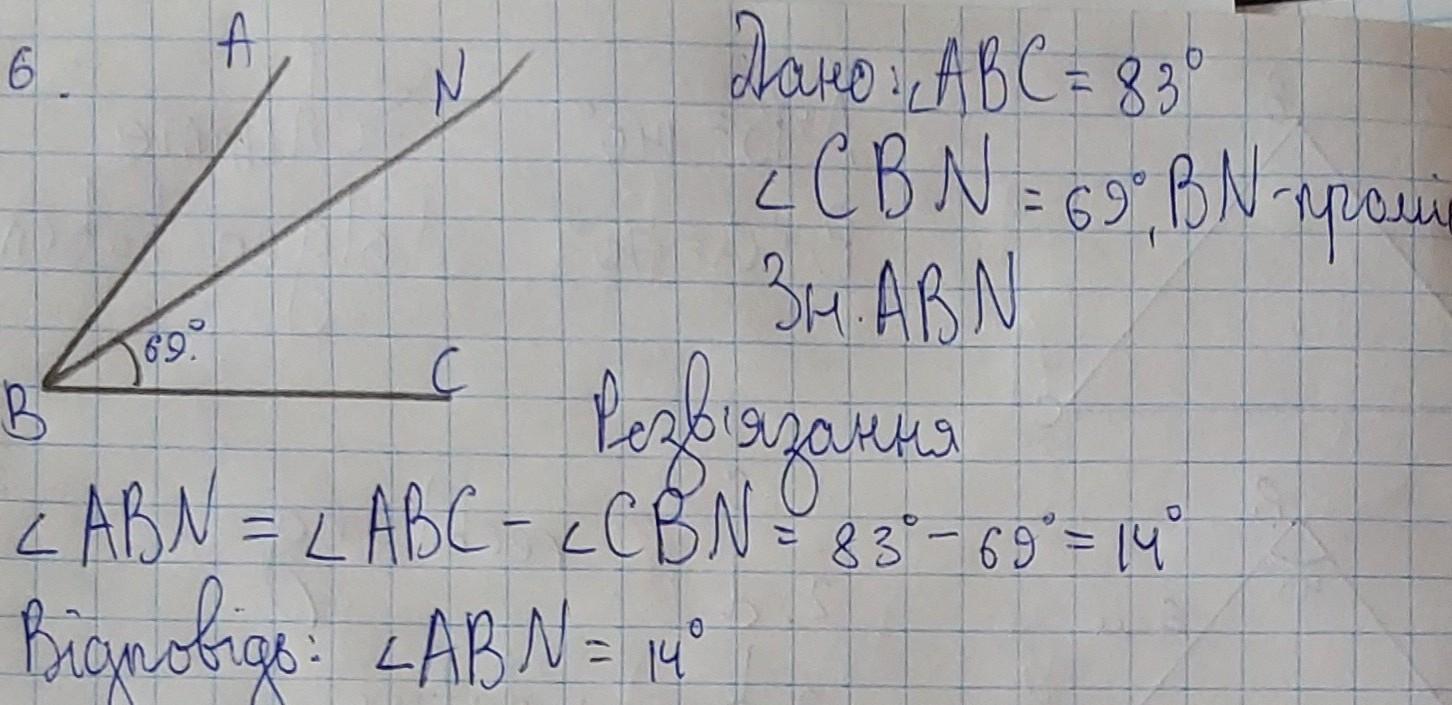 6.
A
N
Дано: ∠ABC = 83°
∠CBN = 69°, BN - промі
Зн. ABN
69°.
B
C
Розв'язання
∠ABN = ∠ABC - ∠CBN = 83° - 69° = 14°
Відповідь: ∠ABN = 14°